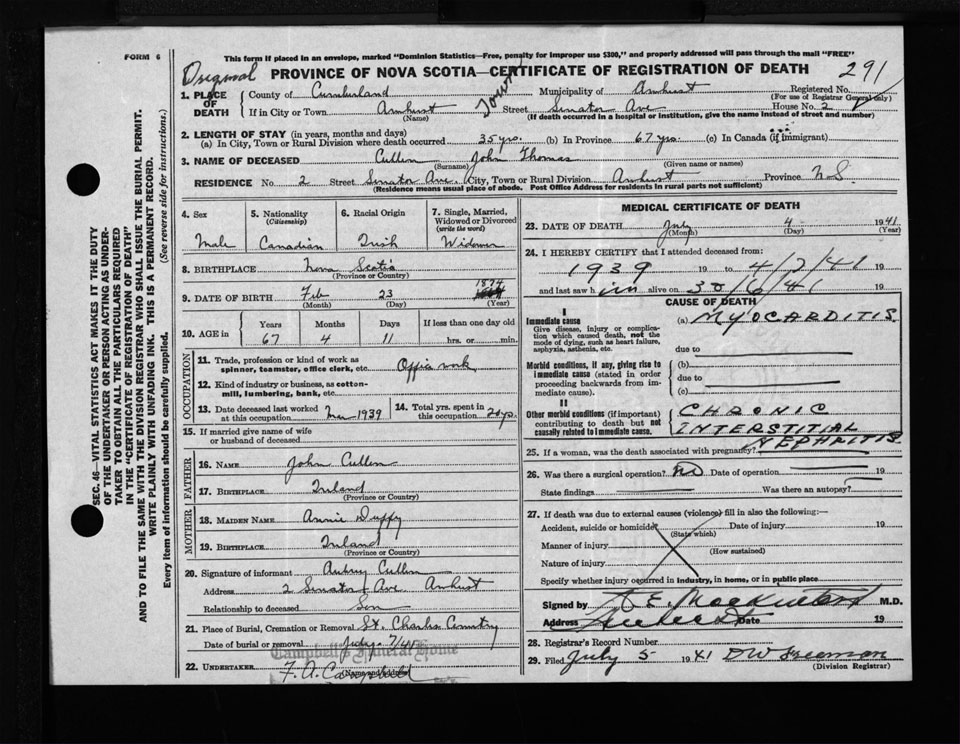 FORM 6
This form if placed in an envelope, marked "Dominion Statistics—Free, penalty for improper use $300," and properly addressed will pass through the mail "FREE"
Original
PROVINCE OF NOVA SCOTIA—CERTIFICATE OF REGISTRATION OF DEATH
291
1. PLACE OF DEATH
County of Cumberland Municipality of Amherst Registered No.
(For use of Registrar General only)
If in City or Town Amherst Town Street Senator Ave House No. 2
(Name) (If death occurred in a hospital or institution, give the name instead of street and number)
2. LENGTH OF STAY (in years, months and days)
(a) In City, Town or Rural Division where death occurred 35 yrs. (b) In Province 67 yrs. (c) In Canada (if immigrant)
3. NAME OF DECEASED Cullen John Thomas
(Surname) (Given name or names)
RESIDENCE No. 2 Street Senator Ave. City, Town or Rural Division Amherst Province N.S.
(Residence means usual place of abode. Post Office Address for residents in rural parts not sufficient)
4. Sex
Male
5. Nationality
(Citizenship)
Canadian
6. Racial Origin
Irish
7. Single, Married, Widowed or Divorced
(write the word)
Widower
8. BIRTHPLACE Nova Scotia
(Province or Country)
9. DATE OF BIRTH Feb 23 1874
(Month) (Day) (Year)
10. AGE in
Years Months Days If less than one day old
67 4 11 hrs. or min.
OCCUPATION
11. Trade, profession or kind of work as spinner, teamster, office clerk, etc. Office work
12. Kind of industry or business, as cotton-mill, lumbering, bank, etc.
13. Date deceased last worked at this occupation 1939
14. Total yrs. spent in this occupation 20 yrs.
15. If married give name of wife or husband of deceased
FATHER
16. NAME John Cullen
17. BIRTHPLACE Ireland
(Province or Country)
MOTHER
18. MAIDEN NAME Annie Duffy
19. BIRTHPLACE Ireland
(Province or Country)
20. Signature of informant Aubrey Cullen
Address 2 Senator Ave Amherst
Relationship to deceased Son
21. Place of Burial, Cremation or Removal St. Charles Cemetry
Date of burial or removal July 7/41
Campbell's Funeral Home
22. UNDERTAKER F. A. Campbell
(Name and address)
MEDICAL CERTIFICATE OF DEATH
23. DATE OF DEATH July 4 1941
(Month) (Day) (Year)
24. I HEREBY CERTIFY that I attended deceased from:
1939 19 to 4/7/41 19
and last saw him alive on 30/6/41 19
CAUSE OF DEATH
I
Immediate cause
Give disease, injury or complication which caused death, not the mode of dying, such as heart failure, asphyxia, asthenia, etc.
(a) MYOCARDITIS.
due to
Morbid conditions, if any, giving rise to immediate cause (stated in order proceeding backwards from immediate cause).
(b)
due to
(c)
II
Other morbid conditions (if important) contributing to death but not causally related to immediate cause.
CHRONIC
INTERSTITIAL
NEPHRITIS.
25. If a woman, was the death associated with pregnancy?
26. Was there a surgical operation? No Date of operation 19
State findings Was there an autopsy?
27. If death was due to external causes (violence) fill in also the following:—
Accident, suicide or homicide Date of injury 19
(State which)
Manner of injury
(How sustained)
Nature of injury
Specify whether injury occurred in industry, in home, or in public place
Signed by M.D.
Address Amherst Date 19
28. Registrar's Record Number
29. Filed July 5 1941 D W Freeman
(Division Registrar)
SEC. 46—VITAL STATISTICS ACT MAKES IT THE DUTY
OF THE UNDERTAKER OR PERSON ACTING AS UNDER-
TAKER TO OBTAIN ALL THE PARTICULARS REQUIRED
IN THE "CERTIFICATE OF REGISTRATION OF DEATH"
AND TO FILE THE SAME WITH THE DIVISION REGISTRAR WHO SHALL ISSUE THE BURIAL PERMIT.
WRITE PLAINLY WITH UNFADING INK. THIS IS A PERMANENT RECORD.
Every item of information should be carefully supplied. (See reverse side for instructions.)